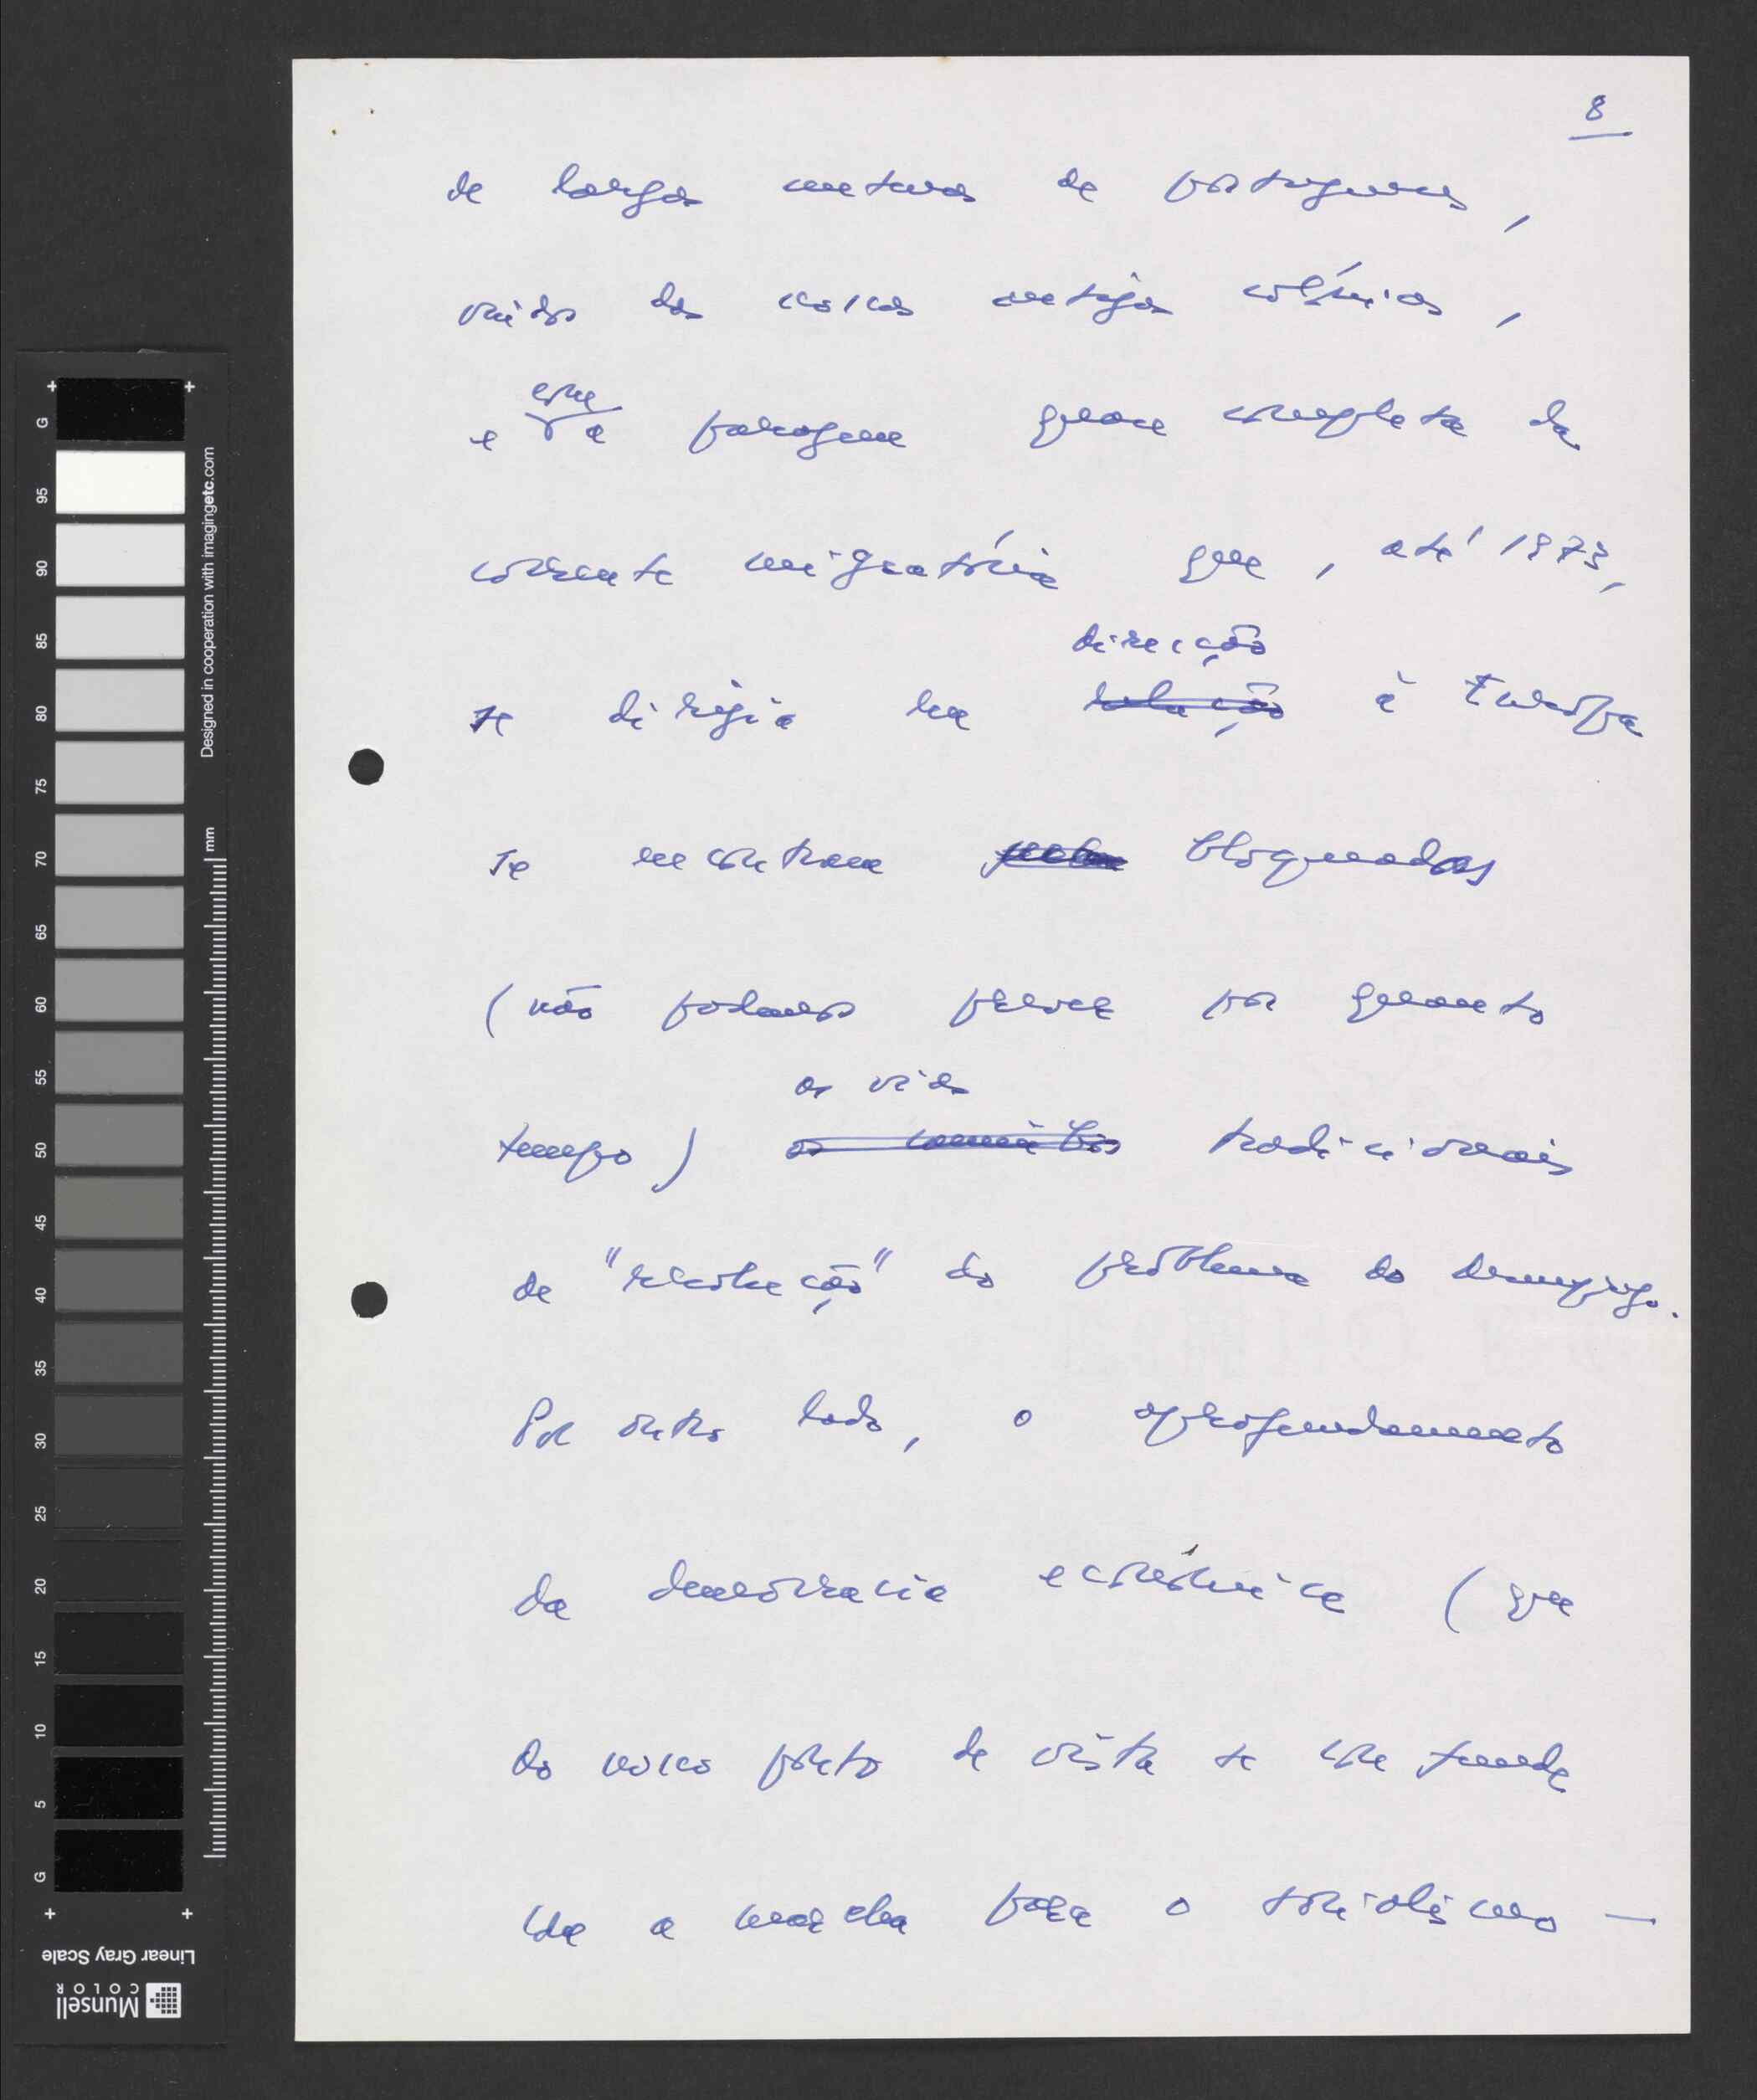 8
de largas centenas de portugueses,
vindos das nossas antigas colónias,
com
e a paragem quase completa da
corrente migratória que, até 1973,
direcção
se dirigia na relação à Europa
se encontram bloqueadas
(não podemos prever por quanto
as vias
tempo) os caminhos tradicionais
de "resolução" do problema do desemprego.
Por outro lado, o aprofundamento
da democracia económica (que
do nosso ponto de vista se confunde
com a marcha para o socialismo —
G 95 90 85 80 75 70 65 60 55 50 45 40 35 30 25 20 15 10 5 G
Designed in cooperation with imagingetc.com
mm
Linear Gray Scale
Munsell
COLOR